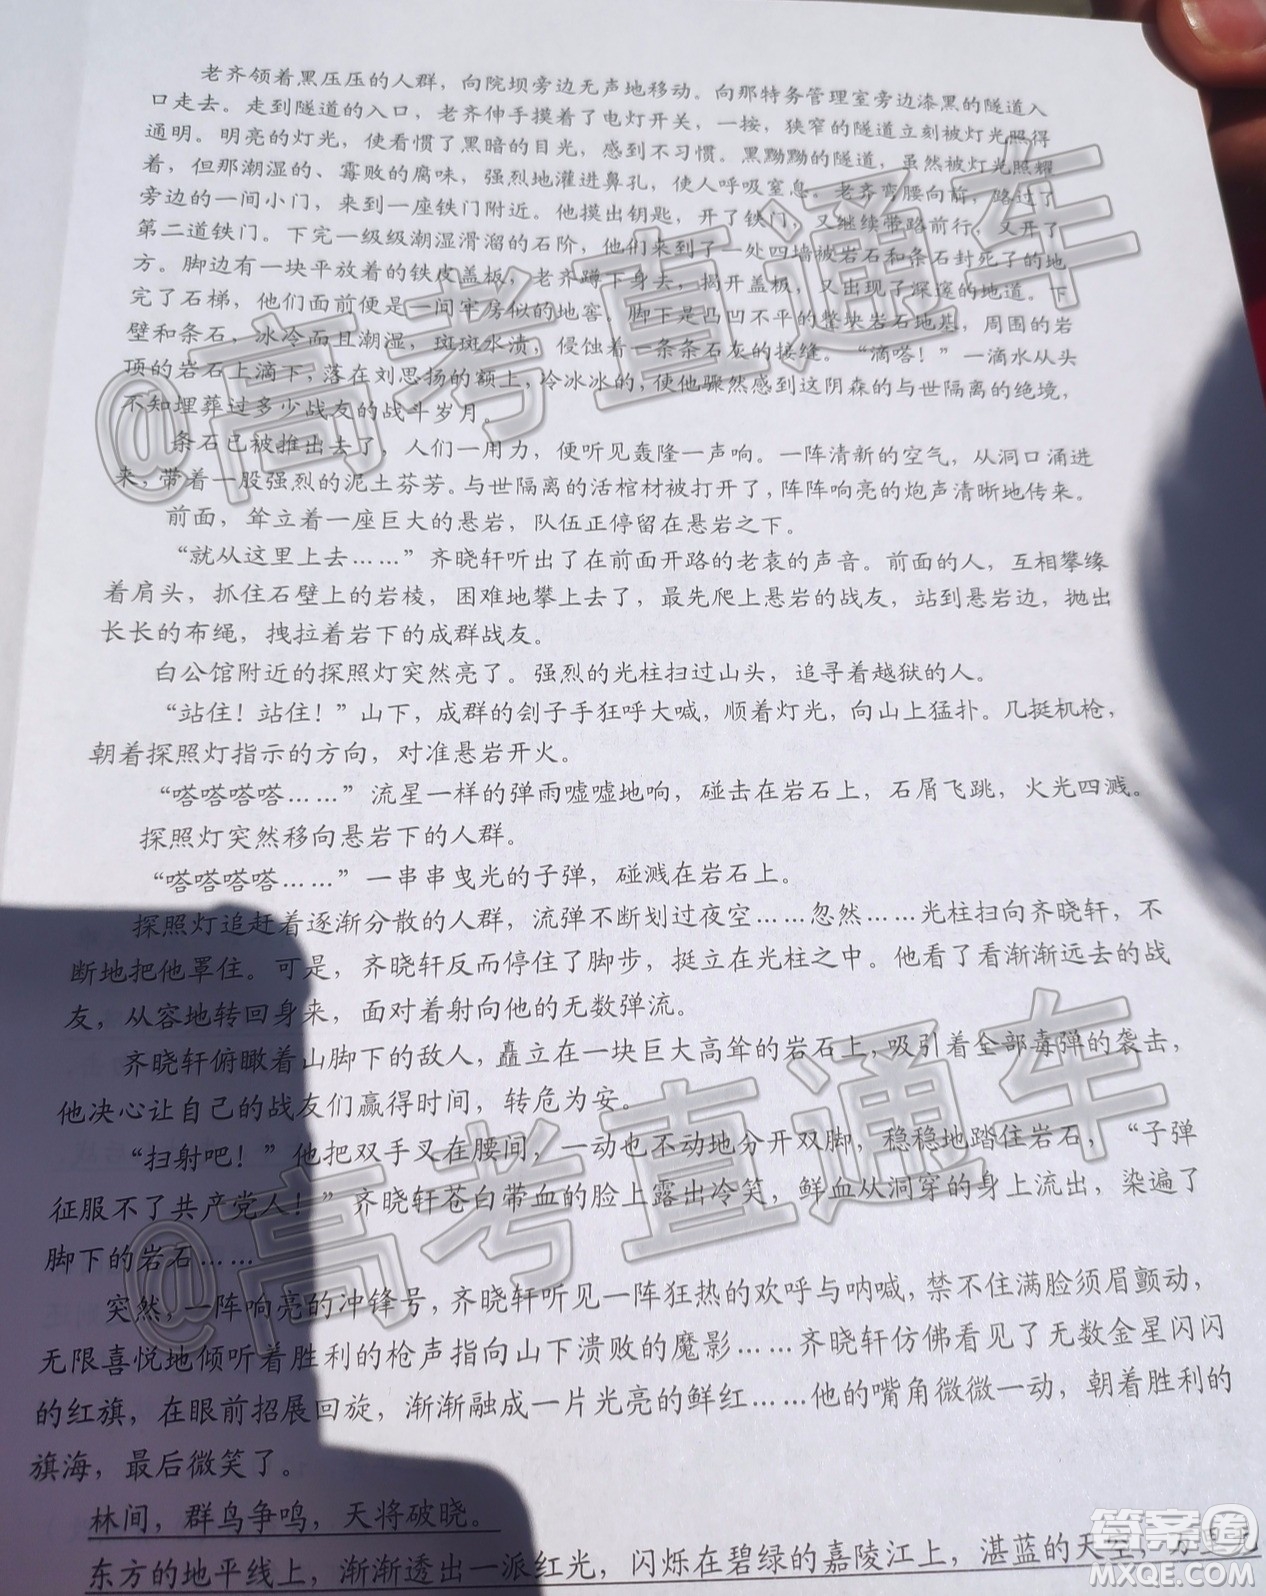 老齐领着黑压压的人群，向院坝旁边无声地移动。向那特务管理室旁边漆黑的隧道入
口走去。走到隧道的入口，老齐伸手摸着了电灯开关，一按，狭窄的隧道立刻被灯光照得
通明。明亮的灯光，使看惯了黑暗的目光，感到不习惯。黑黝黝的隧道，虽然被灯光照耀
着，但那潮湿的、霉败的腐味，强烈地灌进鼻孔，使人呼吸窒息。老齐弯腰向前，路过了
旁边的一间小门，来到一座铁门附近。他摸出钥匙，开了铁门，又继续带路前行，又开了
第二道铁门。下完一级级潮湿滑溜的石阶，他们来到了一处四墙被岩石和条石封死了的地
方。脚边有一块平放着的铁皮盖板，老齐蹲下身去，揭开盖板，又出现了深邃的地道。下
完了石梯，他们面前便是一间牢房似的地窖，脚下是凸凹不平的整块岩石地基，周围的岩
壁和条石，冰冷而且潮湿，斑斑水渍，侵蚀着一条条石灰的接缝。“滴嗒！”一滴水从头
顶的岩石上滴下，落在刘思扬的额上，冷冰冰的，使他骤然感到这阴森的与世隔离的绝境，
不知埋葬过多少战友的战斗岁月。
条石已被推出去了，人们一用力，便听见轰隆一声响。一阵清新的空气，从洞口涌进
来，带着一股强烈的泥土芬芳。与世隔离的活棺材被打开了，阵阵响亮的炮声清晰地传来。
前面，耸立着一座巨大的悬岩，队伍正停留在悬岩之下。
“就从这里上去……”齐晓轩听出了在前面开路的老袁的声音。前面的人，互相攀缘
着肩头，抓住石壁上的岩棱，困难地攀上去了，最先爬上悬岩的战友，站到悬岩边，抛出
长长的布绳，拽拉着岩下的成群战友。
白公馆附近的探照灯突然亮了。强烈的光柱扫过山头，追寻着越狱的人。
“站住！站住！”山下，成群的刽子手狂呼大喊，顺着灯光，向山上猛扑。几挺机枪，
朝着探照灯指示的方向，对准悬岩开火。
“嗒嗒嗒嗒……”流星一样的弹雨嘘嘘地响，碰击在岩石上，石屑飞跳，火光四溅。
探照灯突然移向悬岩下的人群。
“嗒嗒嗒嗒……”一串串曳光的子弹，碰溅在岩石上。
探照灯追赶着逐渐分散的人群，流弹不断划过夜空……忽然……光柱扫向齐晓轩，不
断地把他罩住。可是，齐晓轩反而停住了脚步，挺立在光柱之中。他看了看渐渐远去的战
友，从容地转回身来，面对着射向他的无数弹流。
齐晓轩俯瞰着山脚下的敌人，矗立在一块巨大高耸的岩石上，吸引着全部毒弹的袭击，
他决心让自己的战友们赢得时间，转危为安。
“扫射吧！”他把双手叉在腰间，一动也不动地分开双脚，稳稳地踏住岩石，“子弹
征服不了共产党人！”齐晓轩苍白带血的脸上露出冷笑，鲜血从洞穿的身上流出，染遍了
脚下的岩石……
突然，一阵响亮的冲锋号，齐晓轩听见一阵狂热的欢呼与呐喊，禁不住满脸须眉颤动，
无限喜悦地倾听着胜利的枪声指向山下溃败的魔影……齐晓轩仿佛看见了无数金星闪闪
的红旗，在眼前招展回旋，渐渐融成一片光亮的鲜红……他的嘴角微微一动，朝着胜利的
旗海，最后微笑了。
林间，群鸟争鸣，天将破晓。
东方的地平线上，渐渐透出一派红光，闪烁在碧绿的嘉陵江上，湛蓝的天空，万里无
@高考直通车
@高考直通车
答案圈
MXQE.COM